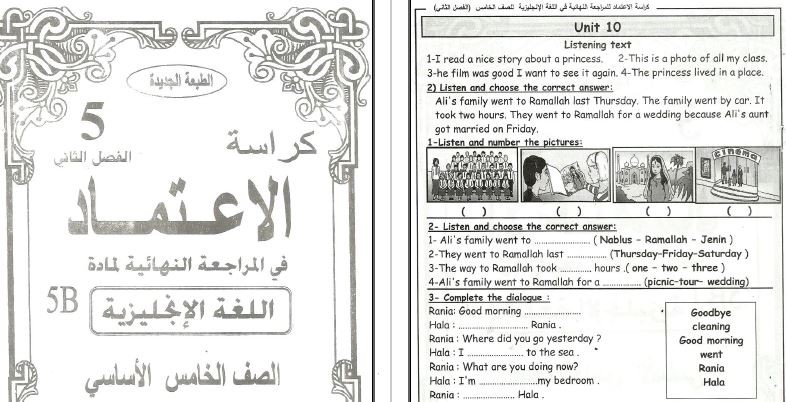 الطبعة الجديدة
5
كراسة
الفصل الثاني
الاعتماد
في المراجعة النهائية لمادة
5B
اللغة الإنجليزية
الصف الخامس الأساسي
كراسة الاعتماد للمراجعة النهائية في اللغة الإنجليزية للصف الخامس (الفصل الثاني)
Unit 10
Listening text
1-I read a nice story about a princess. 2-This is a photo of all my class.
3-he film was good I want to see it again. 4-The princess lived in a place.
2) Listen and choose the correct answer:
Ali's family went to Ramallah last Thursday. The family went by car. It
took two hours. They went to Ramallah for a wedding because Ali's aunt
got married on Friday.
1-Listen and number the pictures:
cinema
( ) ( ) ( ) ( )
2- Listen and choose the correct answer:
1- Ali's family went to .................... ( Nablus - Ramallah - Jenin )
2-They went to Ramallah last .............. (Thursday-Friday-Saturday )
3-The way to Ramallah took ........... hours .( one - two - three )
4-Ali's family went to Ramallah for a ............. (picnic-tour- wedding)
3- Complete the dialogue :
Rania: Good morning ....................
Hala : ......................... Rania .
Rania : Where did you go yesterday ?
Hala : I .................... to the sea .
Rania : What are you doing now?
Hala : I'm .....................my bedroom .
Rania : ................... Hala .
Goodbye
cleaning
Good morning
went
Rania
Hala